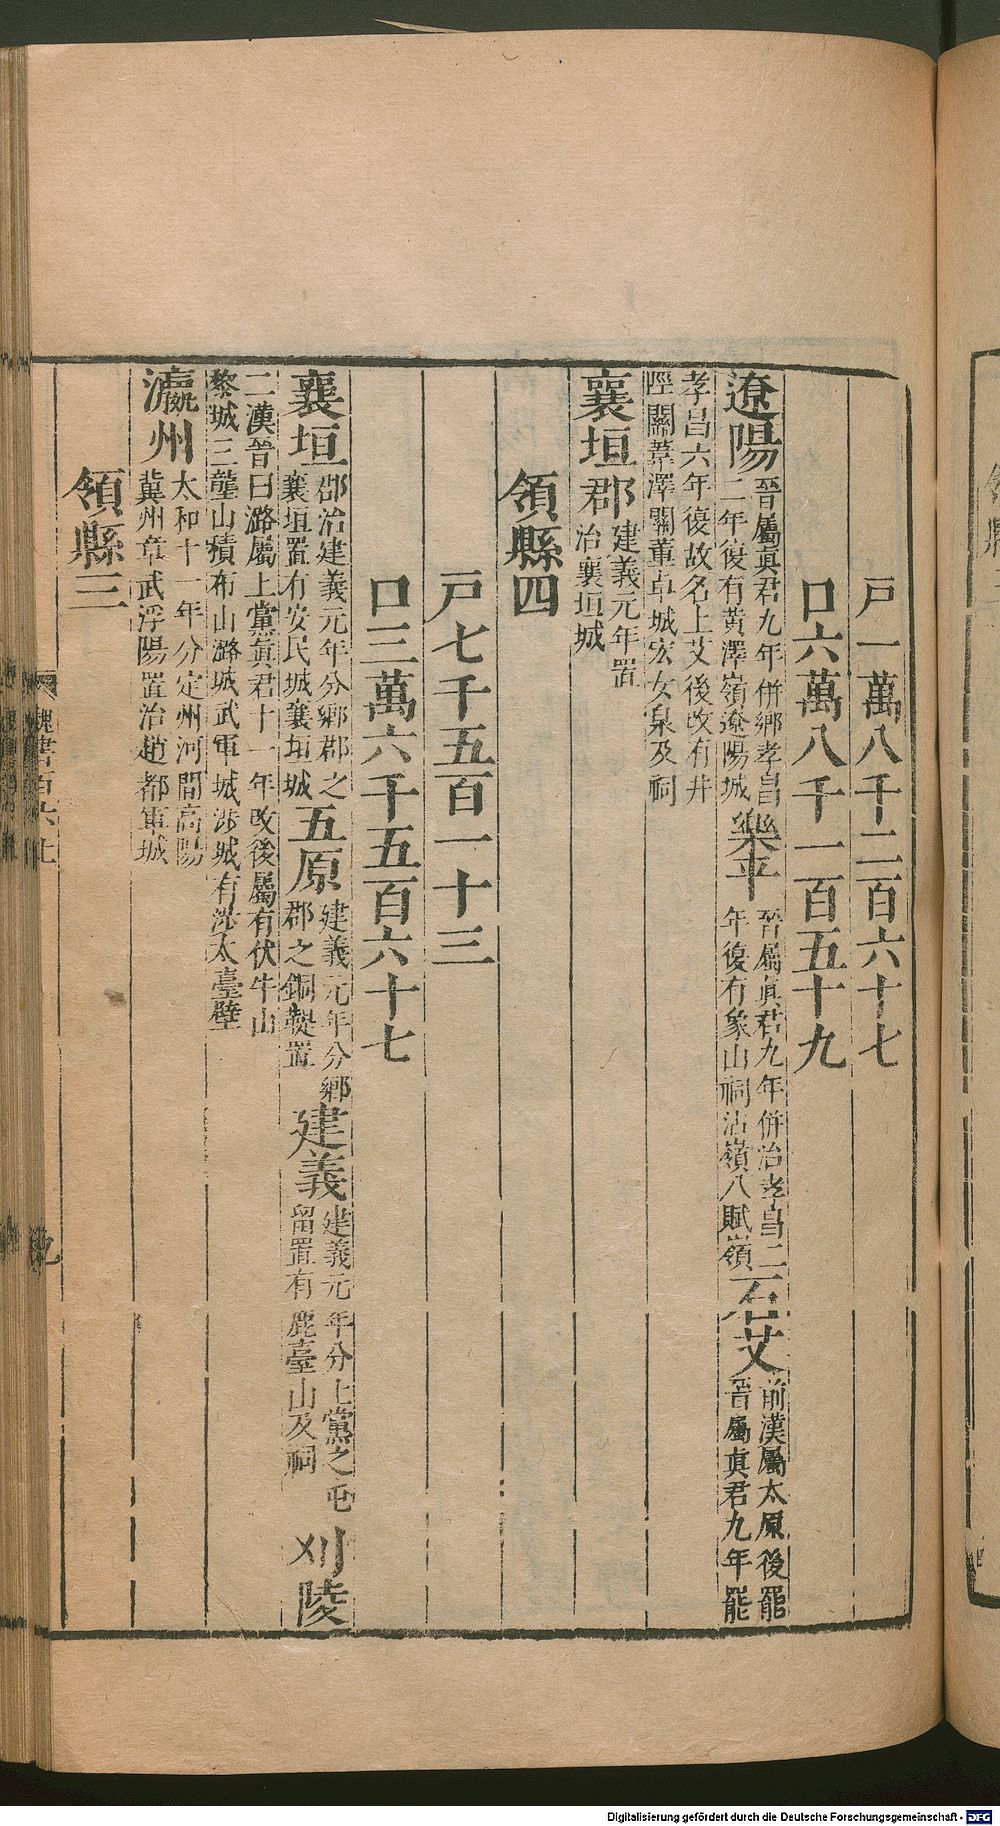 戸一萬八千二百六十七
口六萬八千一百五十九
遼陽晉屬真君九年併鄉孝昌二年復有黃澤嶺遼陽城樂平晉屬真君九年併治孝昌二年復有象山祠沾嶺八賦嶺石艾前漢屬太原後罷晉屬真君九年罷
孝昌六年復故名上艾後改有井陘關葦澤關董卓城宏女泉及祠
襄垣郡建義元年置治襄垣城
領縣四
戸七千五百一十三
口三萬六千五百六十七
襄垣郡治建義元年分鄉郡之襄垣置有安民城襄垣城五原建義元年分鄉郡之銅鞮置建義建義元年分上黨之屯留置有鹿臺山及祠刈陵
二漢晉曰潞屬上黨真君十一年改後屬有伏牛山黎城三壟山積布山潞城武軍城涉城有涉太臺壁
瀛州太和十一年分定州河間高陽冀州章武浮陽置治趙都軍城
領縣三
魏書百六上
九
領縣
Digitalisierung gefördert durch die Deutsche Forschungsgemeinschaft - DFG